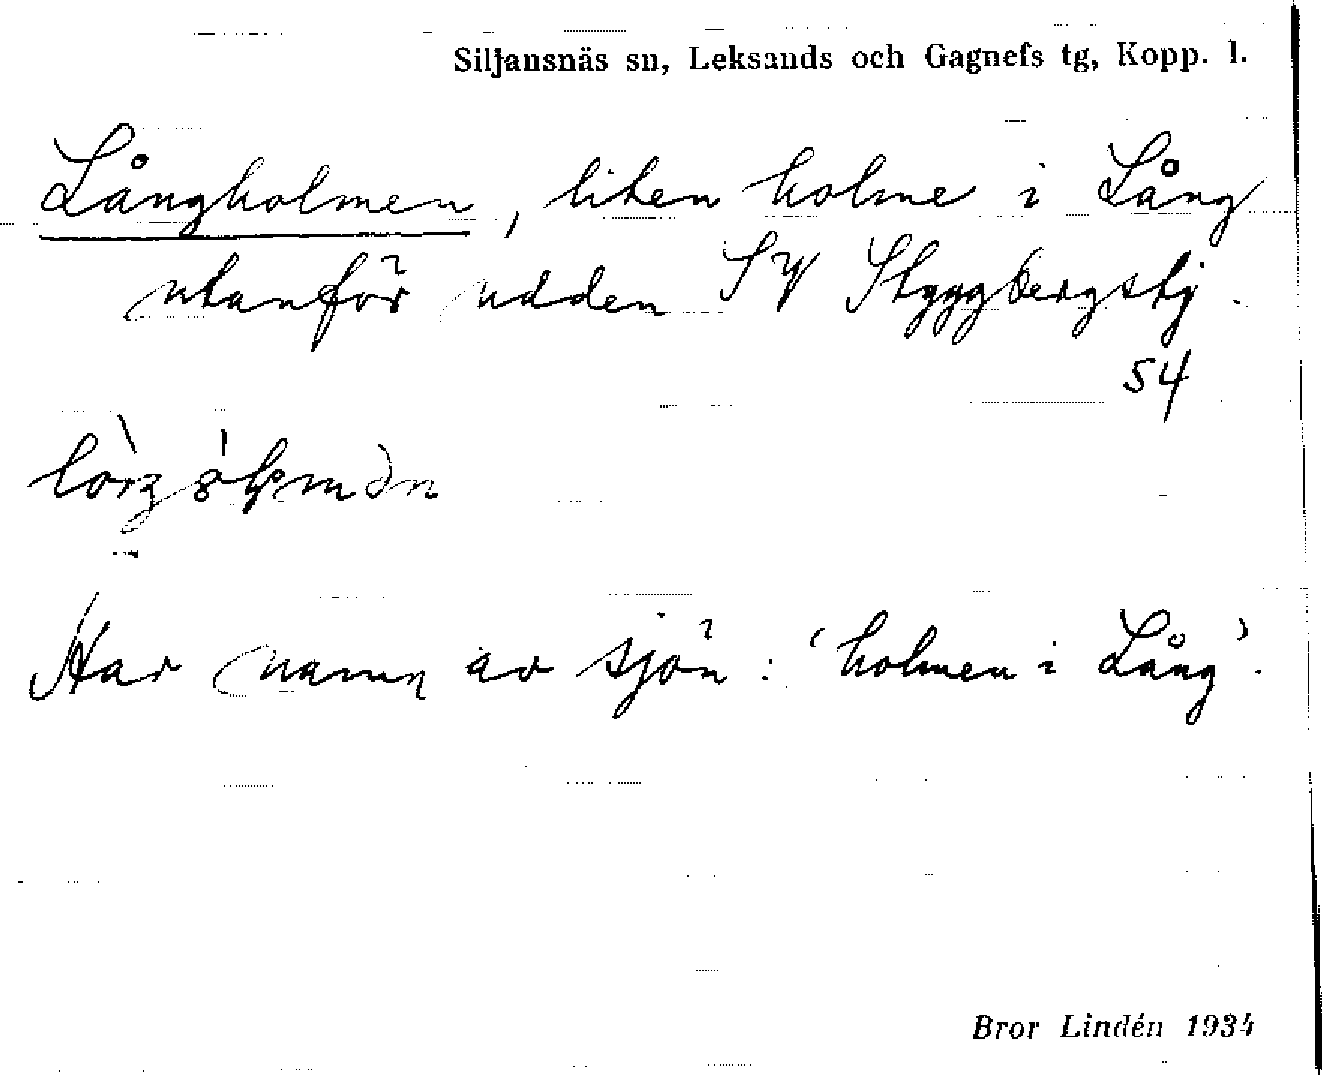 Siljansnäs sn, Leksands och Gagnefs tg, Kopp. l.
Långholmen, liten holme i Lång
utanför udden SV Styggbergstj.
54
Har namn av sjön: 'holmen i Lång'.
Bror Lindén 1934